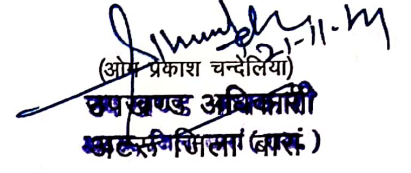 21-11-19
(ओम प्रकाश चन्देलिया)
उप खण्ड अधिकारी
अटरू जिला (बारां)